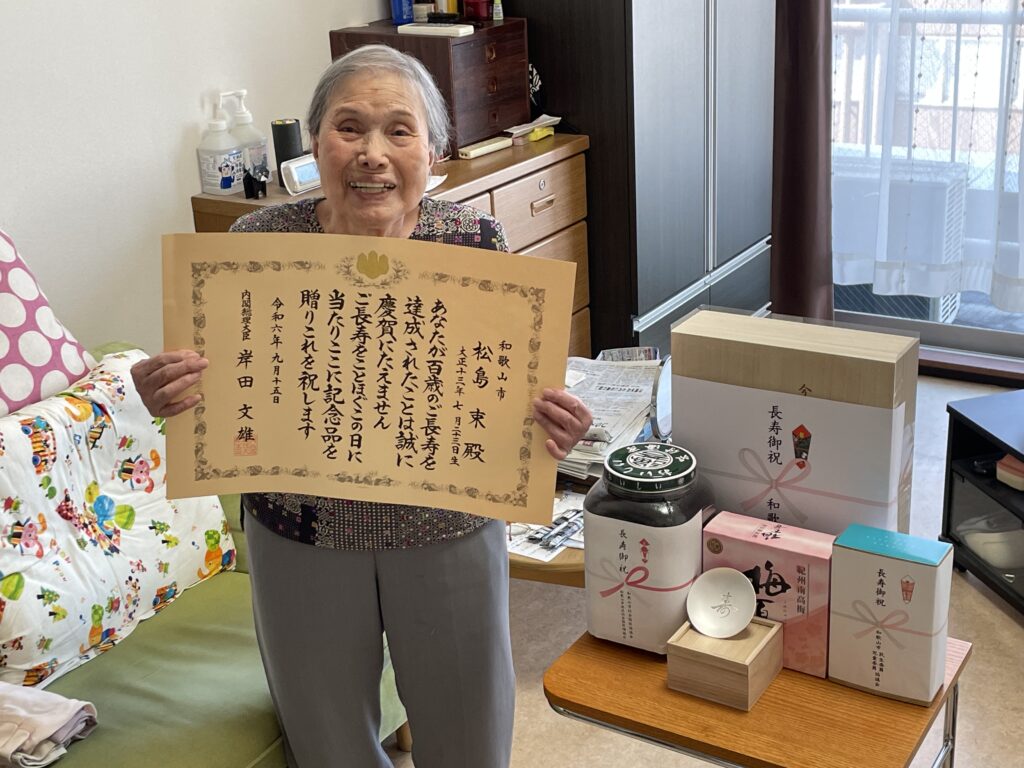 和歌山市
松島 束 殿
大正十三年 七月二十三日生
あなたが百歳のご長寿を
達成されたことは誠に
慶賀にたえません
ご長寿をことほぎこの日に
当たりここに記念品を
贈りこれを祝します
令和六年九月十五日
内閣総理大臣 岸田文雄
長寿御祝
長寿御祝
和歌
紀州南高梅
梅
寿
長寿御祝
和歌山市